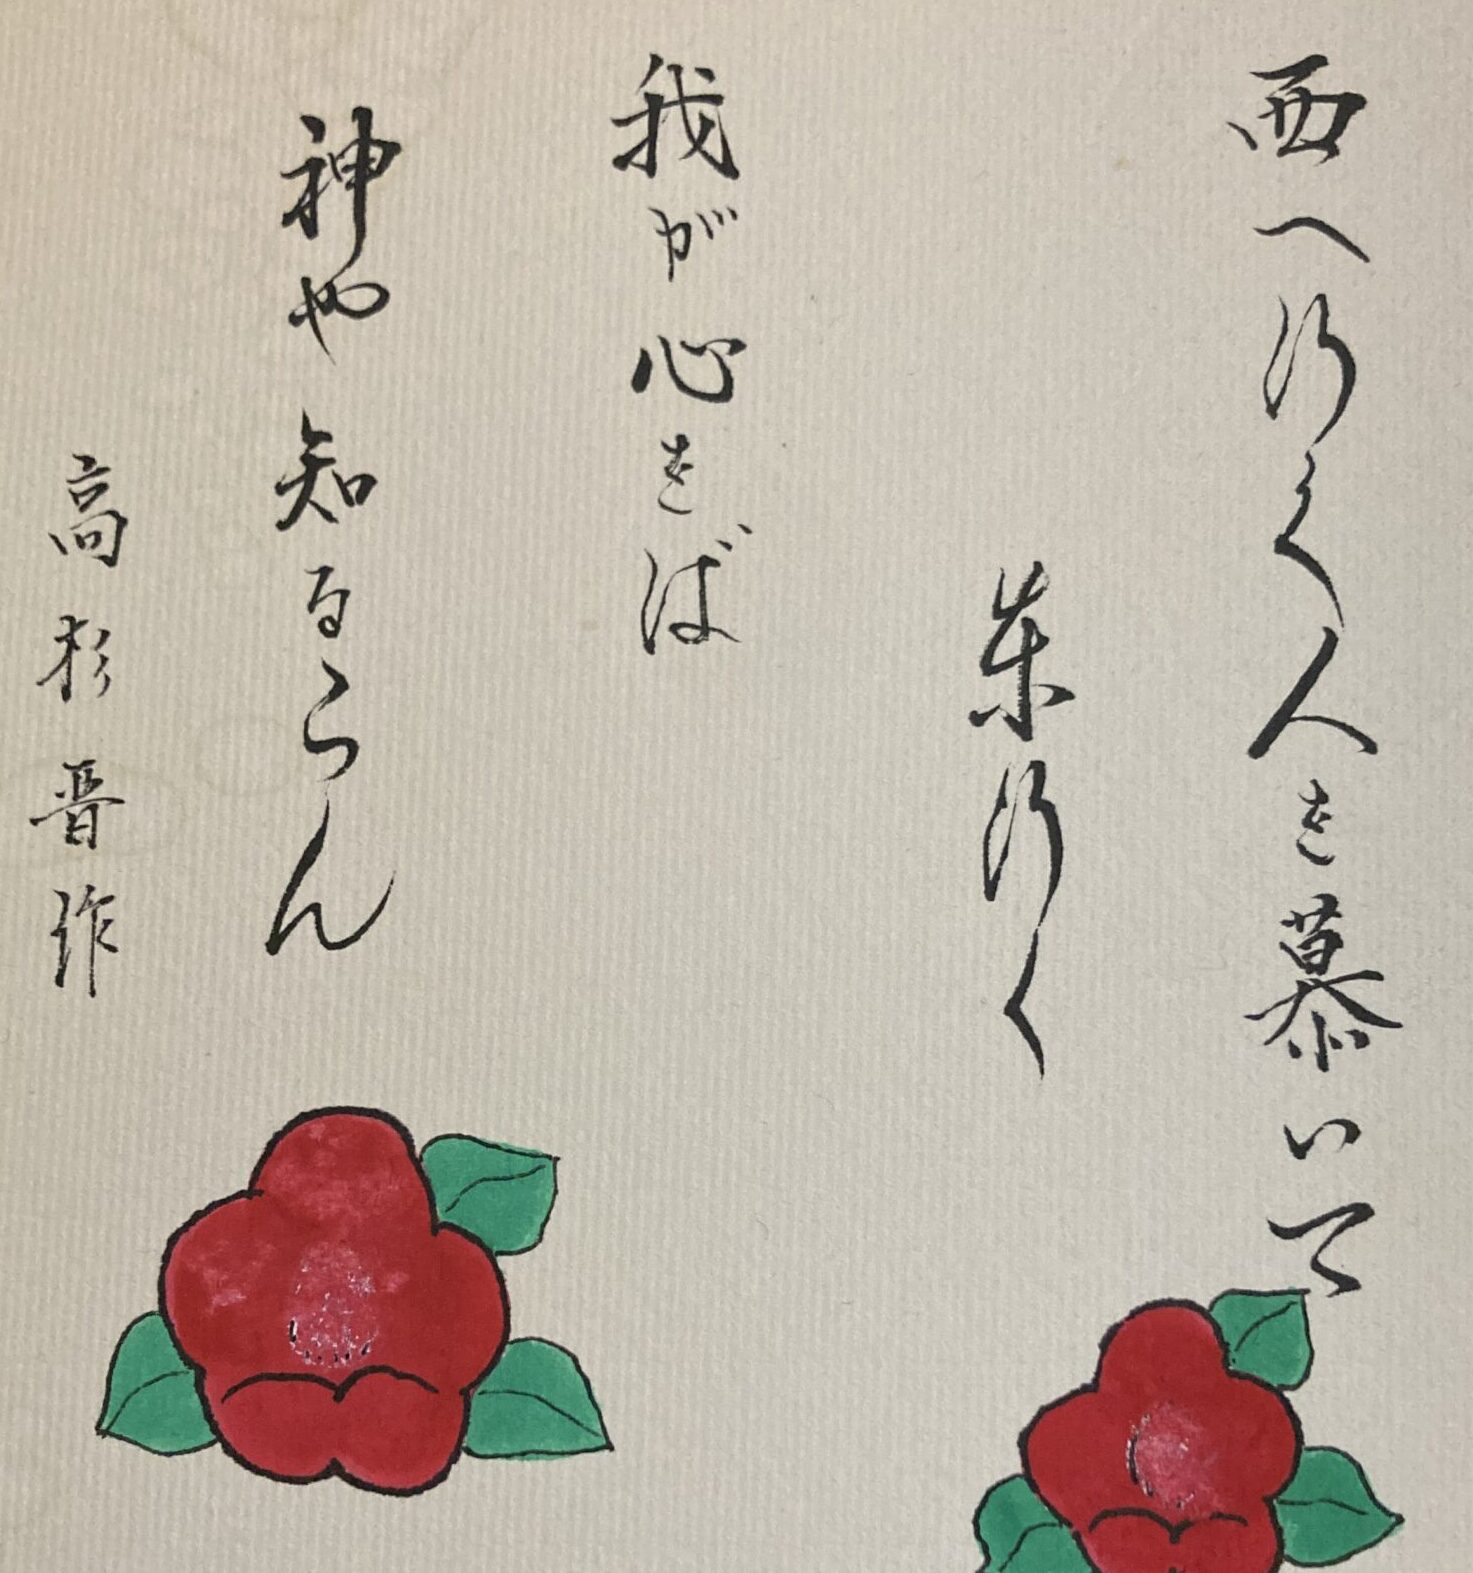 西へ行く人を慕いて
東行く
我が心をば
神や知るらん
高杉晋作